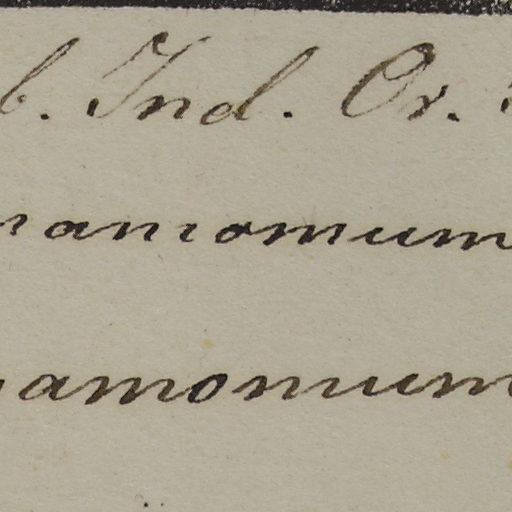 b. Ind. Or.
namomum
amomum